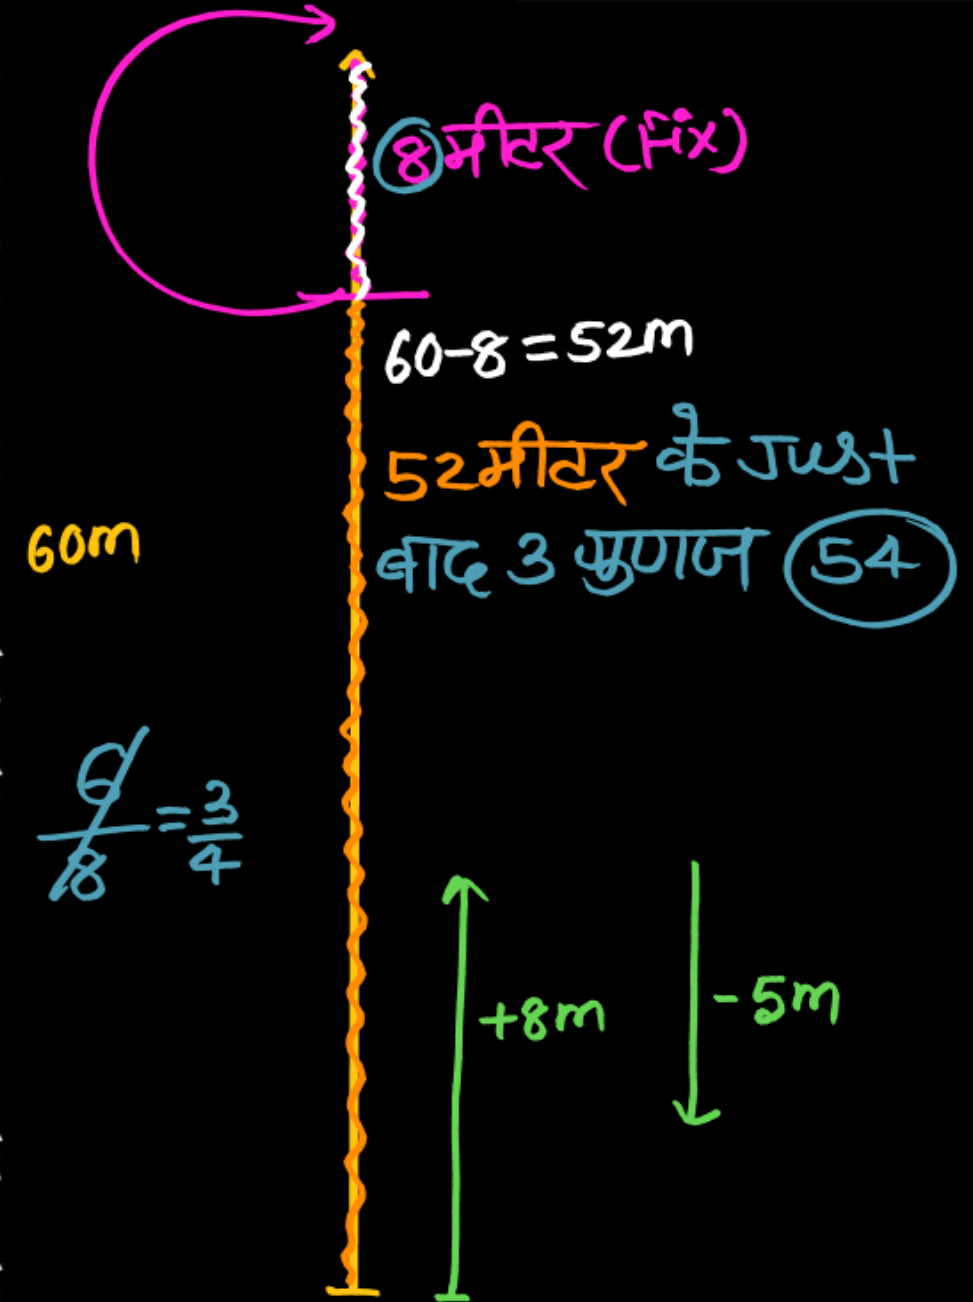 8 मीटर (Fix)
60-8=52m
52 मीटर के Just
बाद 3 गुणज 54
60m
6/8 = 3/4
+8m
-5m